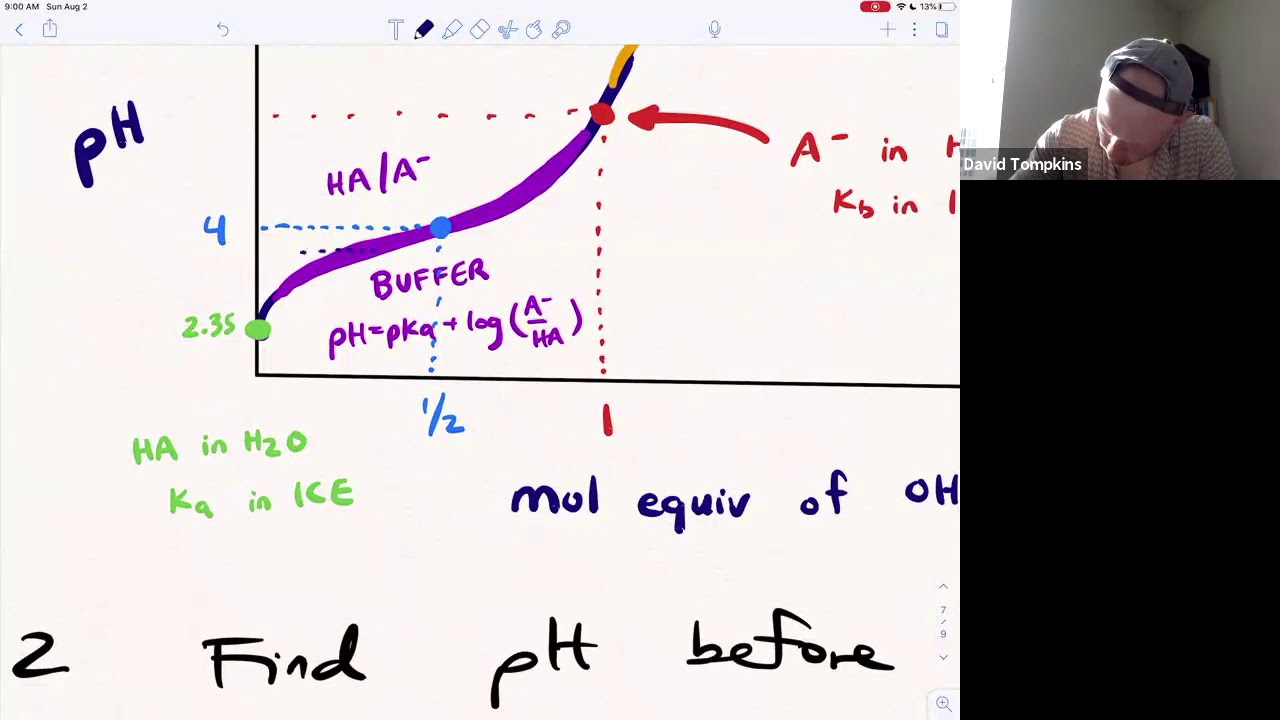 9:00 AM Sun Aug 2
13%
T
pH
HA/A⁻
A⁻ in
David Tompkins
Kb in
4
BUFFER
2.35
pH=pKa+log(A⁻/HA)
1/2
1
HA in H2O
Ka in ICE
mol equiv of OH
7
/
9
2 Find pH before